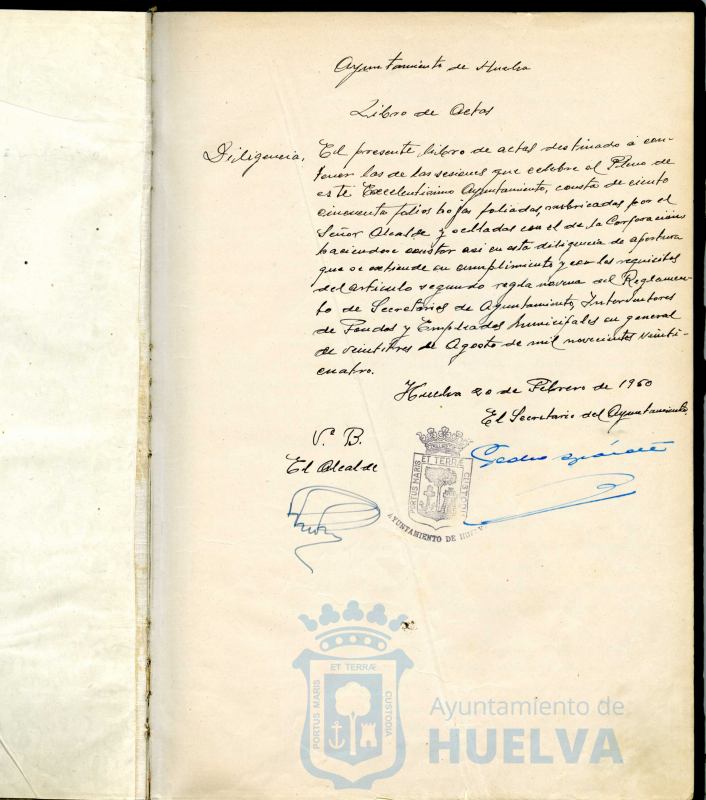 Ayuntamiento de Huelva
Libro de Actas
Diligencia, El presente libro de actas destinado a con-
tener las de las sesiones que celebre el Pleno de
este Excelentisimo Ayuntamiento, consta de ciento
cincuenta folios hojas foliadas, rubricadas por el
Señor Alcalde y selladas con el de la Corporacion
haciendose constar asi en esta diligencia de apertura
que se extiende en cumplimiento y con los requisitos
del articulo segundo regla novena del Reglamen-
to de Secretarios de Ayuntamiento, Interventores
de Fondos y Empleados Municipales en general
de veintitres de Agosto de mil novecientos veinti-
cuatro.
Huelva 20 de Febrero de 1960
El Secretario del Ayuntamiento,
V.º B.
El Alcalde
Pedro
PORTUS MARIS ET TERRÆ CUSTODIA
AYUNTAMIENTO DE HUELVA
PORTUS MARIS ET TERRÆ CUSTODIA
Ayuntamiento de
HUELVA